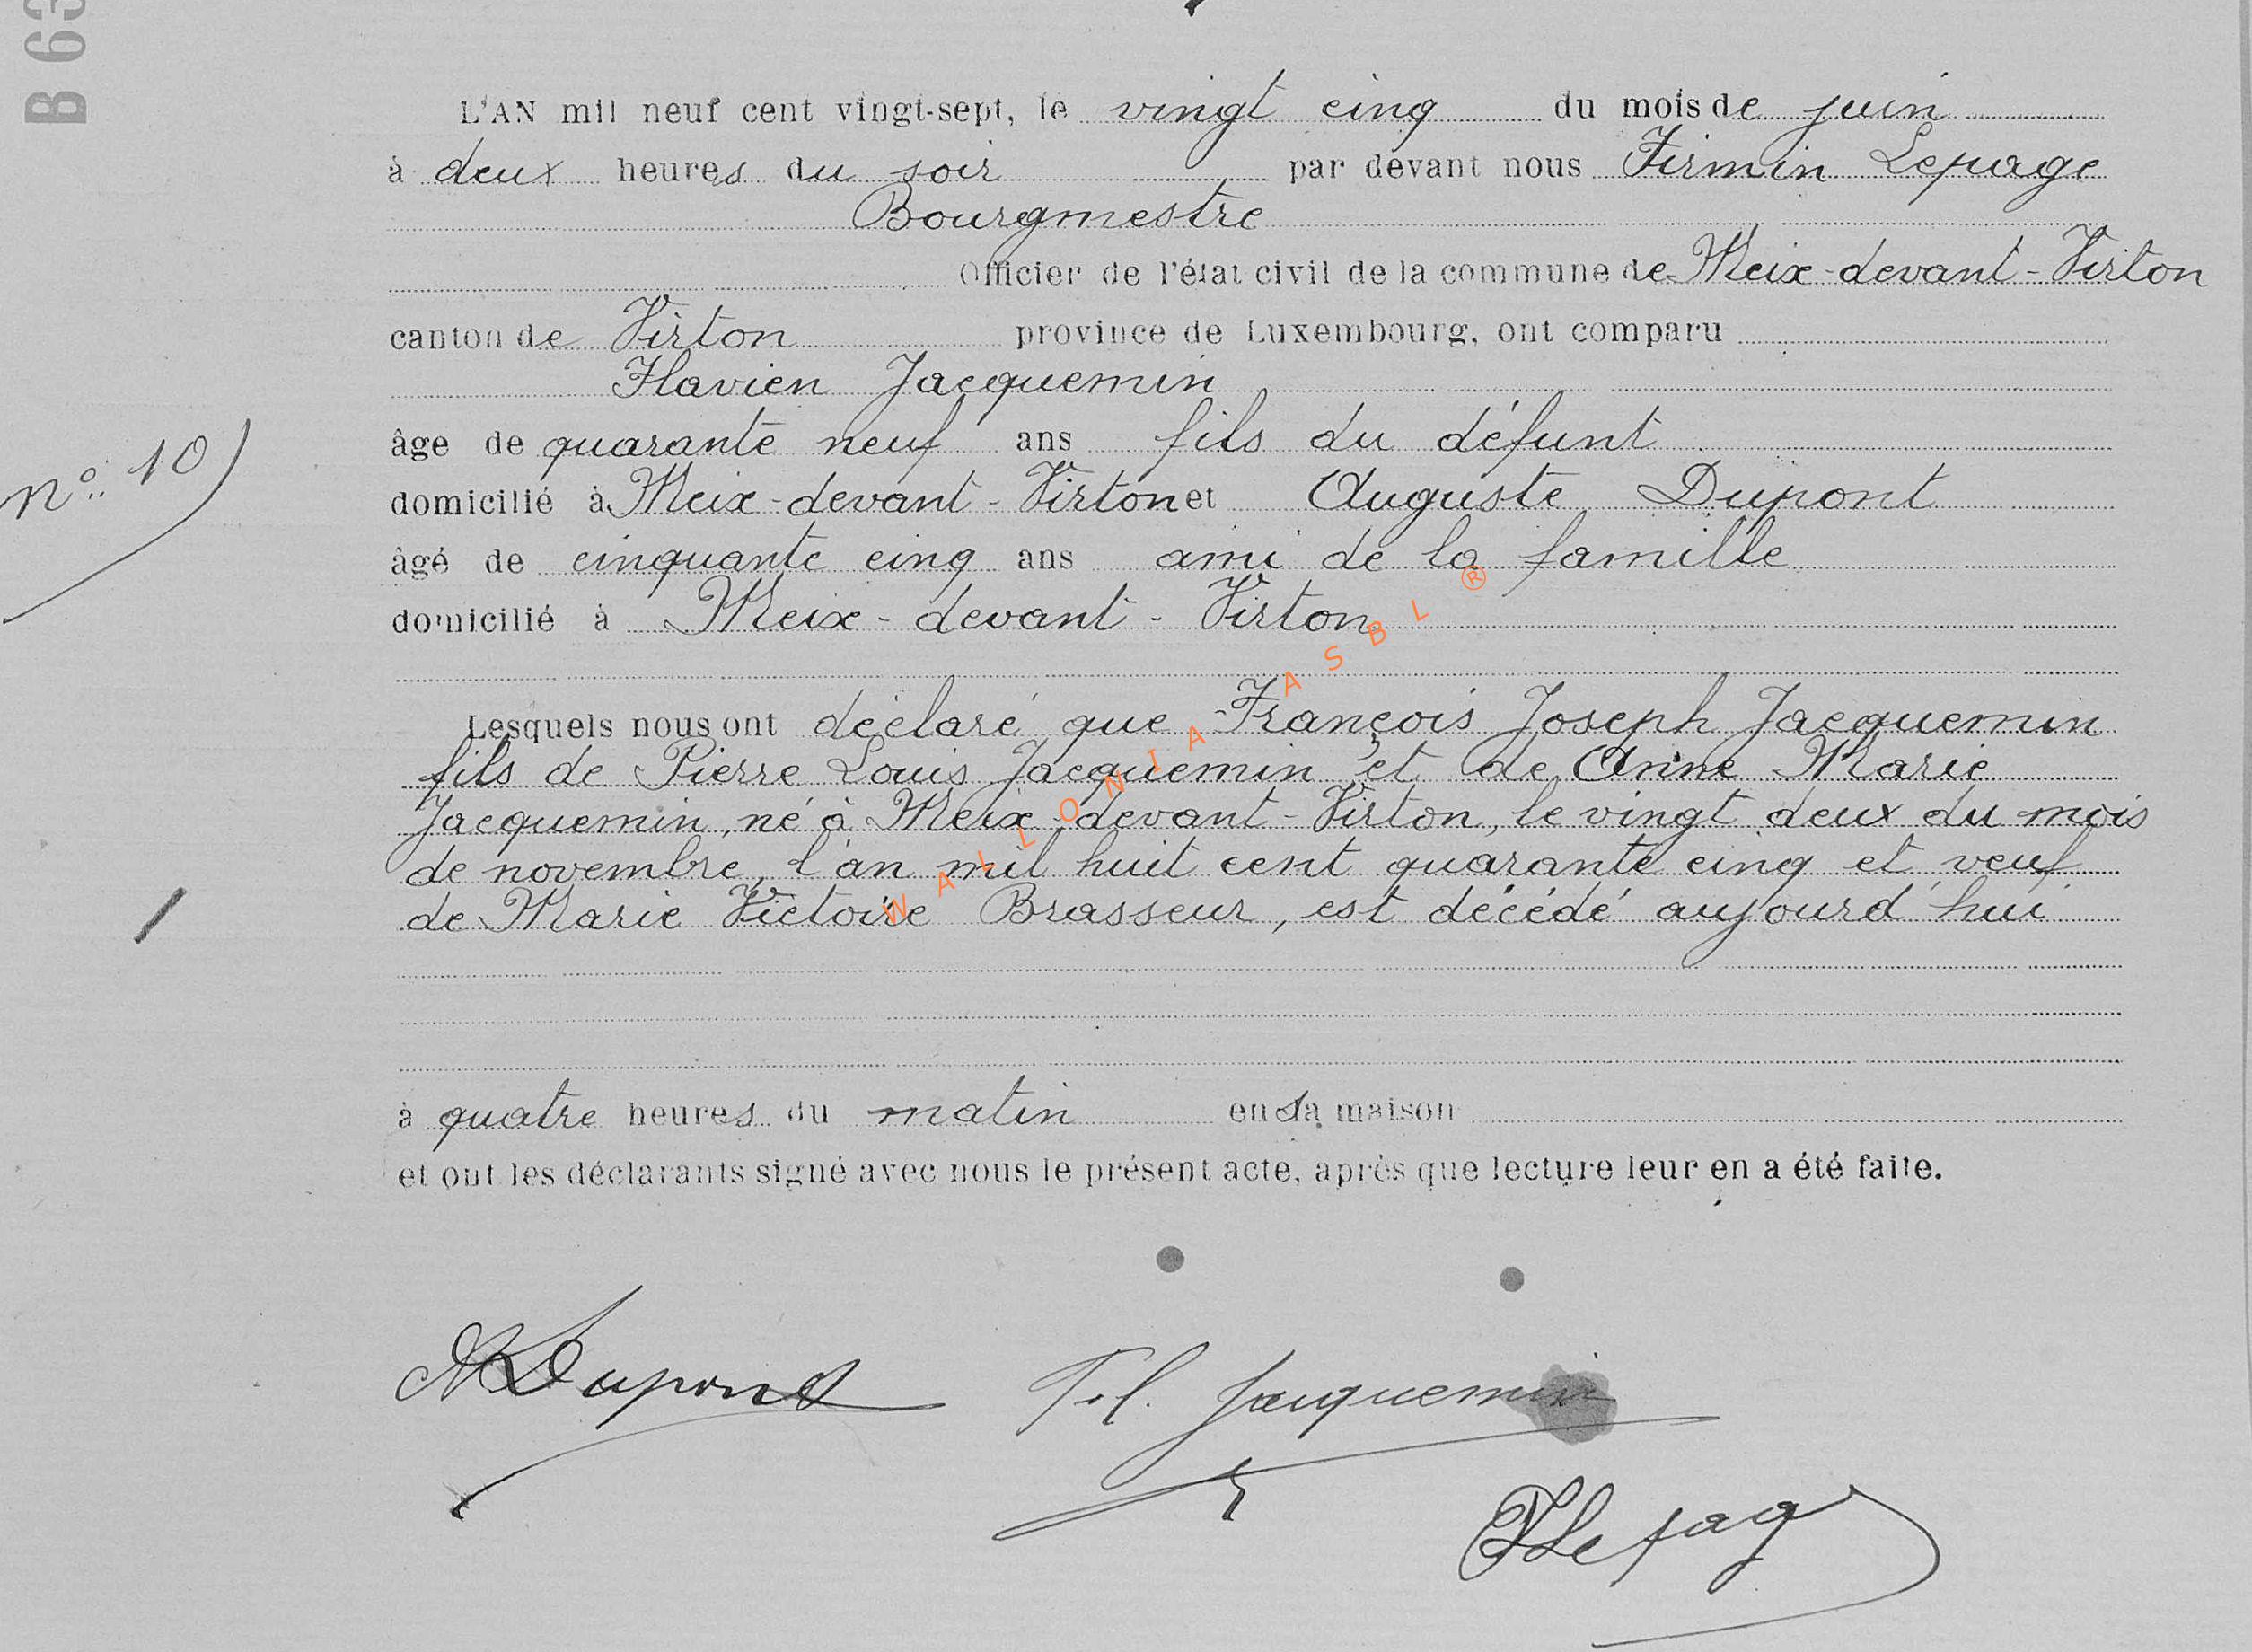 B 63
L'AN mil neuf cent vingt-sept, le vingt cinq du mois de juin
à deux heures du soir par devant nous Firmin Lepage
Bourgmestre
Officier de l'état civil de la commune de Meix-devant-Virton
canton de Virton province de Luxembourg, ont comparu
Flavien Jacquemin
âge de quarante neuf ans fils du défunt
n° 10)
domicilié à Meix-devant-Virton et Auguste Dupont
âgé de cinquante cinq ans ami de la famille
domicilié à Meix-devant-Virton
Lesquels nous ont déclaré que François Joseph Jacquemin
fils de Pierre Louis Jacquemin et de Anne Marie
Jacquemin, né à Meix-devant-Virton, le vingt deux du mois
de novembre, l'an mil huit cent quarante cinq et veuf
de Marie Victoire Brasseur, est décédé aujourd'hui
à quatre heures du matin en sa maison
et ont les déclarants signé avec nous le présent acte, après que lecture leur en a été faite.
WALLONIA ASBL ®
A Dupont Fl. Jacquemin
F Lepage